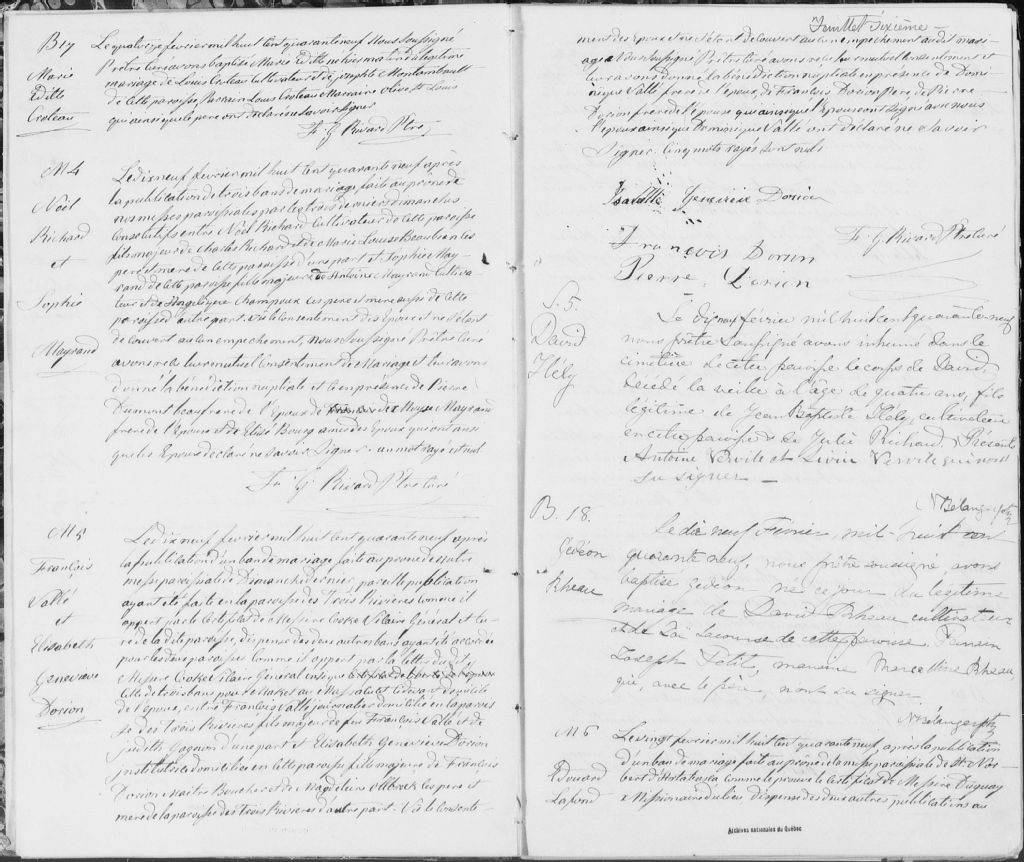 B17
Marie
Edith
Croteau
Le quatorze fevrier mil huit Cent quarante neuf Nous Soussigné
Prêtre Curé avons baptisé Marie Edith née la matin du légitime
mariage de Louis Croteau Cultivateur et de Josephte Montambault
de cette paroisse Parrain Louis Croteau Marraine Olive St Louis
qui ainsi que le pere ont déclaré ne savoir signer
F. G Rivard Ptre
M4
Noël
Richard
et
Sophie
Mayrand
Le dix neuf fevrier mil huit Cent quarante neuf après
la publication de trois bans de mariage faite au prône de
nos messes paroissiales par les trois derniers dimanches
Consécutifs entre Noël Richard Cultivateur de Cette paroisse
fils majeur de Charles Richard et de Marie Louise Beaubien ses
pere et mere de Cette paroisse d'une part et Sophie May-
rand de Cette paroisse fille majeure de Antoine Mayrand Cultiva
teur et de Angelique Champoux ses pere et mere aussi de Cette
paroisse d'autre part. Vu le Consentement des Epoux et ne s'étant
découvert aucun empêchement, nous Soussigné Prêtre Curé
avons reçu leur mutuel Consentement de Mariage et leur avons
donné la bénédiction nuptiale et ce en présence de Pierre
Dumont beaufrere de l'Epoux de Moyse Mayrand
frere de l'Epouse et de Elisé Bourg amis des Epoux qui ont ainsi
que les Epoux declaré ne Savoir Signer. un mot rayé est nul
F. G Rivard Ptre Curé
M5
François
Vallé
et
Elisabeth
Genevieve
Dorion
Le dix neuf fevrier mil huit Cent quarante neuf après
la publication d'un ban de mariage faite au prone de Notre
messe paroissiale de Dimanche dernier, pareille publication
ayant été faite en la paroisse des Trois Rivieres Comme il
appert par le Certificat de Messire Cooke Vicaire Général et Cu-
ré de la dite paroisse, dispense des deux autres bans ayant été accordée
pour les deux paroisses Comme il appert par la lettre du dit
Messire Cooke Vicaire Général
de l'Epouse, entre François Vallé journalier domicilié en la parois
se des trois Rivieres fils majeur de feu François Vallé et de
judith Gagnon d'une part et Elisabeth Genevieve Dorion
institutrice domiciliée en Cette paroisse fille majeure de François
Dorion Maitre Boucher et de Magdeleine ses pere et
mere de la paroisse des trois Rivieres d'autre part. Vu le Consente-
Feuillet Sixième
ment des Epoux et ne s'étant découvert aucun empêchement au dit mari-
age Nous Soussigné Prêtre Curé avons reçu leur mutuel Consentement et
leur avons donné la bénédiction nuptiale en présence de Domi-
nique Vallé frere de l'epoux, de François Dorion Pere de Pierre
Dorion frere de l'épouse qui ainsi que l'Epouse ont Signé avec nous
l'époux ainsi que Dominique Vallé ont déclaré ne Savoir
Signer. Cinq mots rayés sont nuls
Genevieve Dorion
F. G Rivard Ptre Curé
François Dorion
Pierre Dorion
S. 5
David
Hély
Le dix neuf fevrier mil huit cent quarante neuf
nous prêtre Soussigné avons inhumé dans le
cimetière de cette paroisse le corps de David,
décédé la veille à l'âge de quatre ans, fils
légitime de Jean Baptiste Hély, cultivateur
en cette paroisse & de Julie Richard. Présents
Antoine Vervile et Livin Vervile qui n'ont
su signer —
N. Bélanger Ptre
B. 18.
Gédéon
Rheau
Le dix neuf Février, mil-huit cent
quarante neuf, nous prêtre soussigné, avons
baptisé Gédéon né ce jour du légitime
mariage de David Rheau cultivateur
et de Zoé Lacourse de cette paroisse. Parrain
Joseph Petit, marraine Marcelline Rheau
qui, avec le père, n'ont su signer
N. Bélanger ptre
M 6
Edouard
Lafond
Le vingt fevrier mil huit Cent quarante neuf, après la publication
d'un ban de mariage faite au prône de la messe paroissiale de St. Nor-
bert d'Arthabaska Comme le prouve le Certificat de Messire Duguay
Missionnaire du lieu dispense des deux autres publications au
Archives nationales du Québec